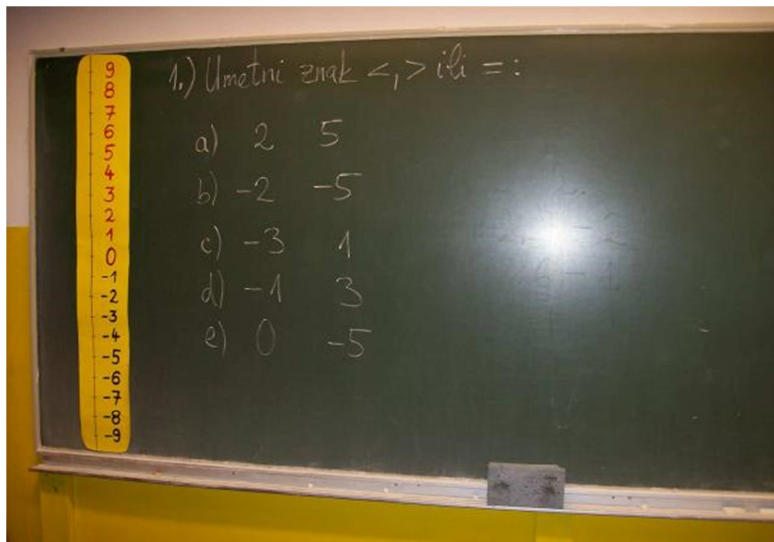 9
8
7
6
5
4
3
2
1
0
-1
-2
-3
-4
-5
-6
-7
-8
-9
1.) Umetni znak <, > ili = :
a) 2 5
b) -2 -5
c) -3 1
d) -1 3
e) 0 -5